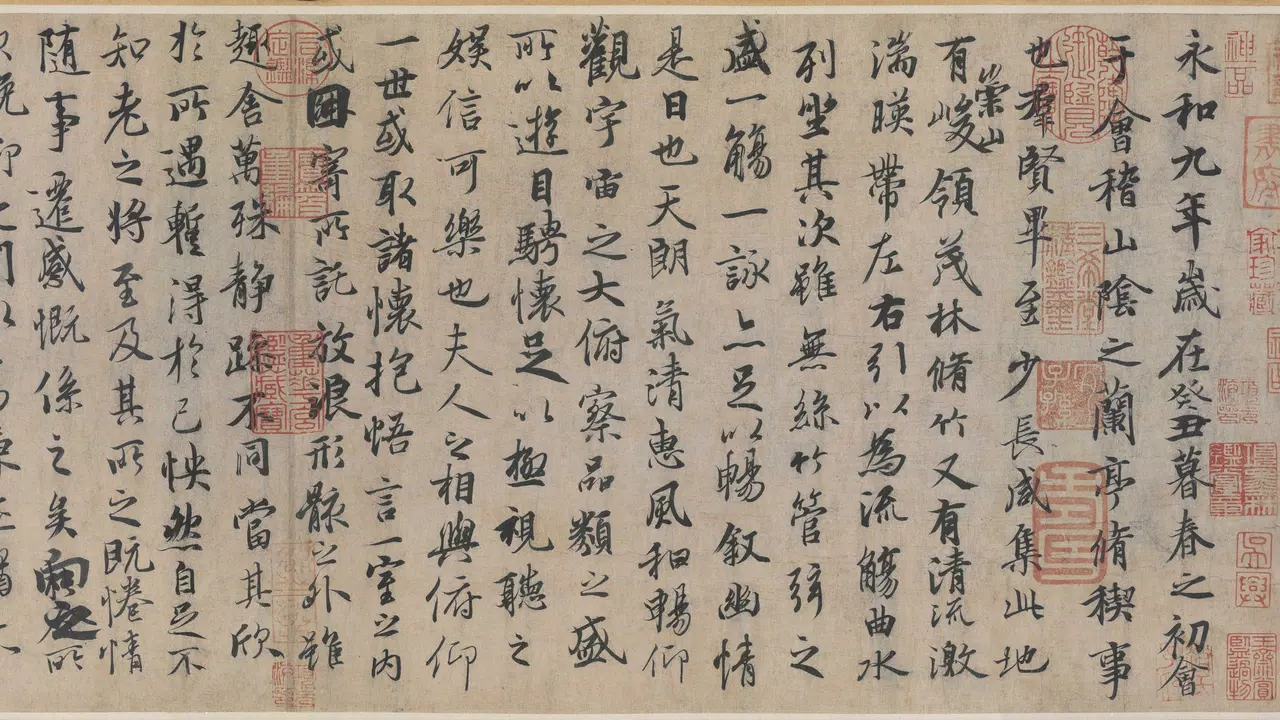 永和九年歲在癸丑暮春之初會
于會稽山陰之蘭亭脩稧事
也羣賢畢至少長咸集此地
有崇山峻領茂林脩竹又有清流激
湍暎帶左右引以為流觴曲水
列坐其次雖無絲竹管弦之
盛一觴一詠亦足以暢叙幽情
是日也天朗氣清惠風和暢仰
觀宇宙之大俯察品類之盛
所以遊目騁懷足以極視聽之
娛信可樂也夫人之相與俯仰
一世或取諸懷抱悟言一室之內
或因寄所託放浪形骸之外雖
趣舍萬殊静躁不同當其欣
於所遇暫得於己怏然自足不
知老之將至及其所之既惓情
隨事遷感慨係之矣向之所
神品
三希堂精鑑璽
宜子孫